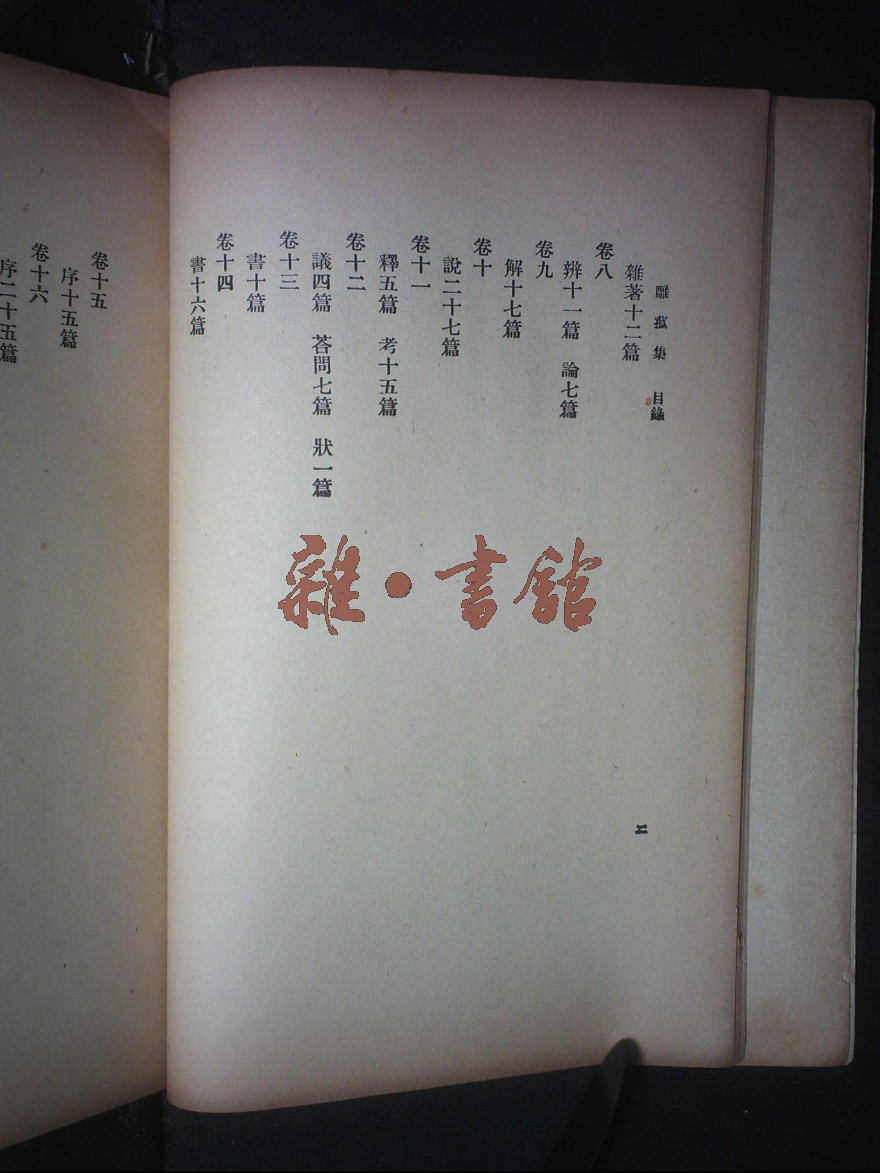 雕菰集　目錄
雜著十二篇
卷八
辨十一篇　論七篇
卷九
解十七篇
卷十
說二十七篇
卷十一
釋五篇　考十五篇
卷十二
議四篇　荅問七篇　狀一篇
卷十三
書十篇
卷十四
書十六篇
二
卷十五
序十五篇
卷十六
序二十五篇
雜・書館